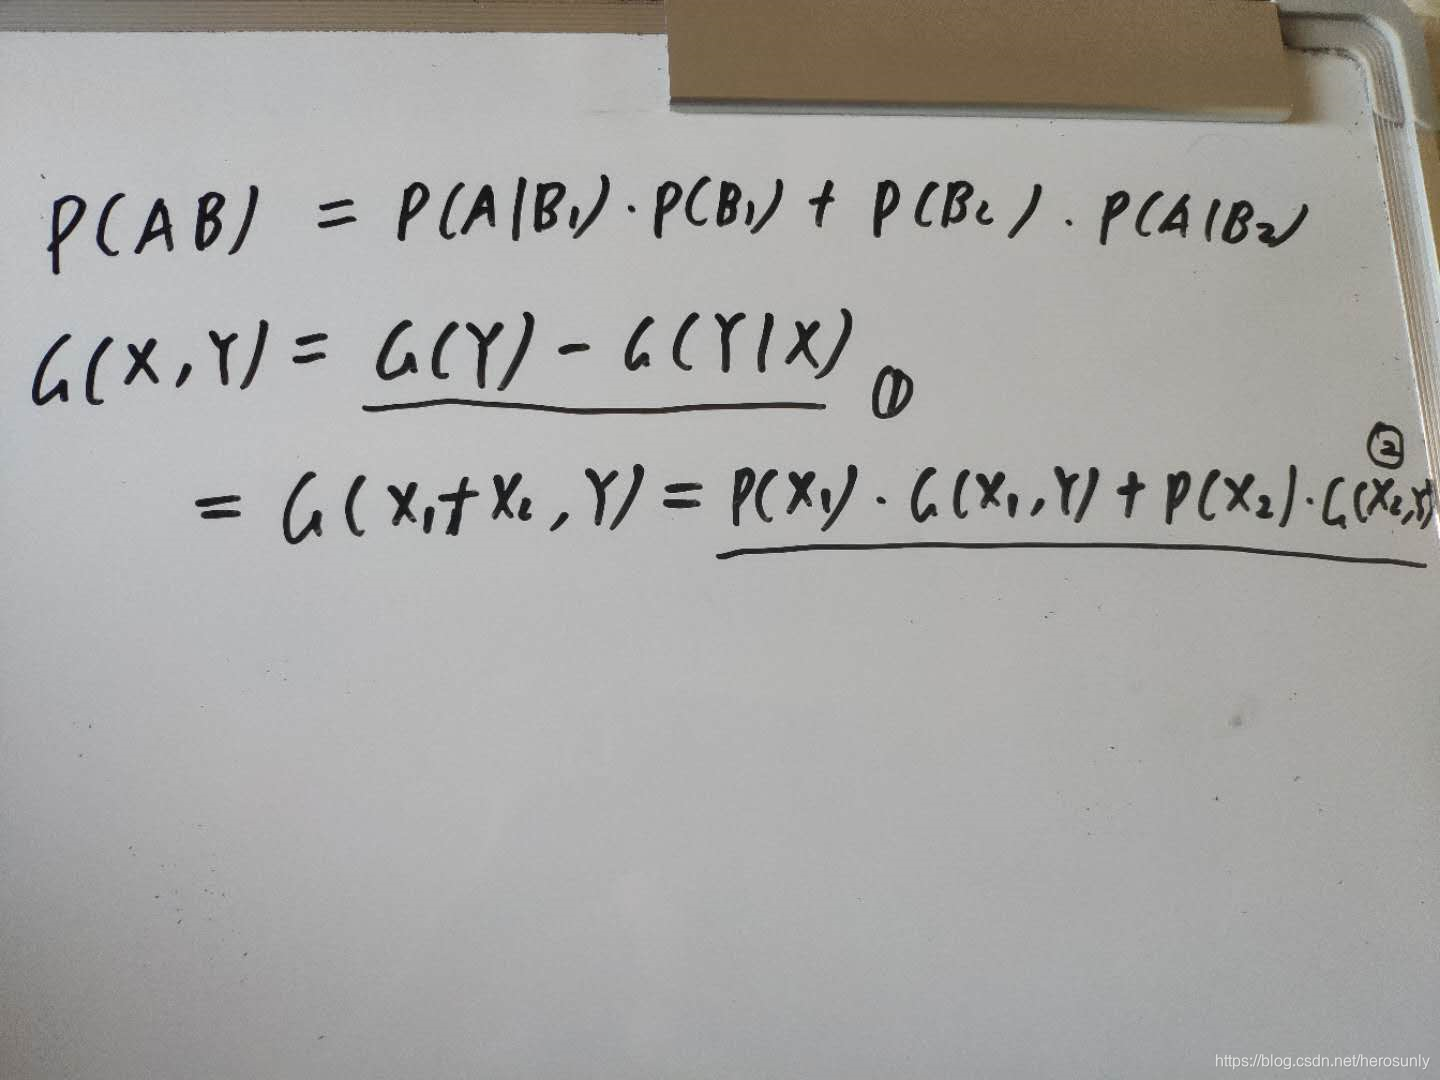 P(AB) = P(A|B₁)·P(B₁) + P(B₂)·P(A|B₂)
G(X,Y) = G(Y) - G(Y|X) ①
= G(X₁+X₂,Y) = P(X₁)·G(X₁,Y) + P(X₂)·G(X₂,Y) ②
https://blog.csdn.net/herosunly